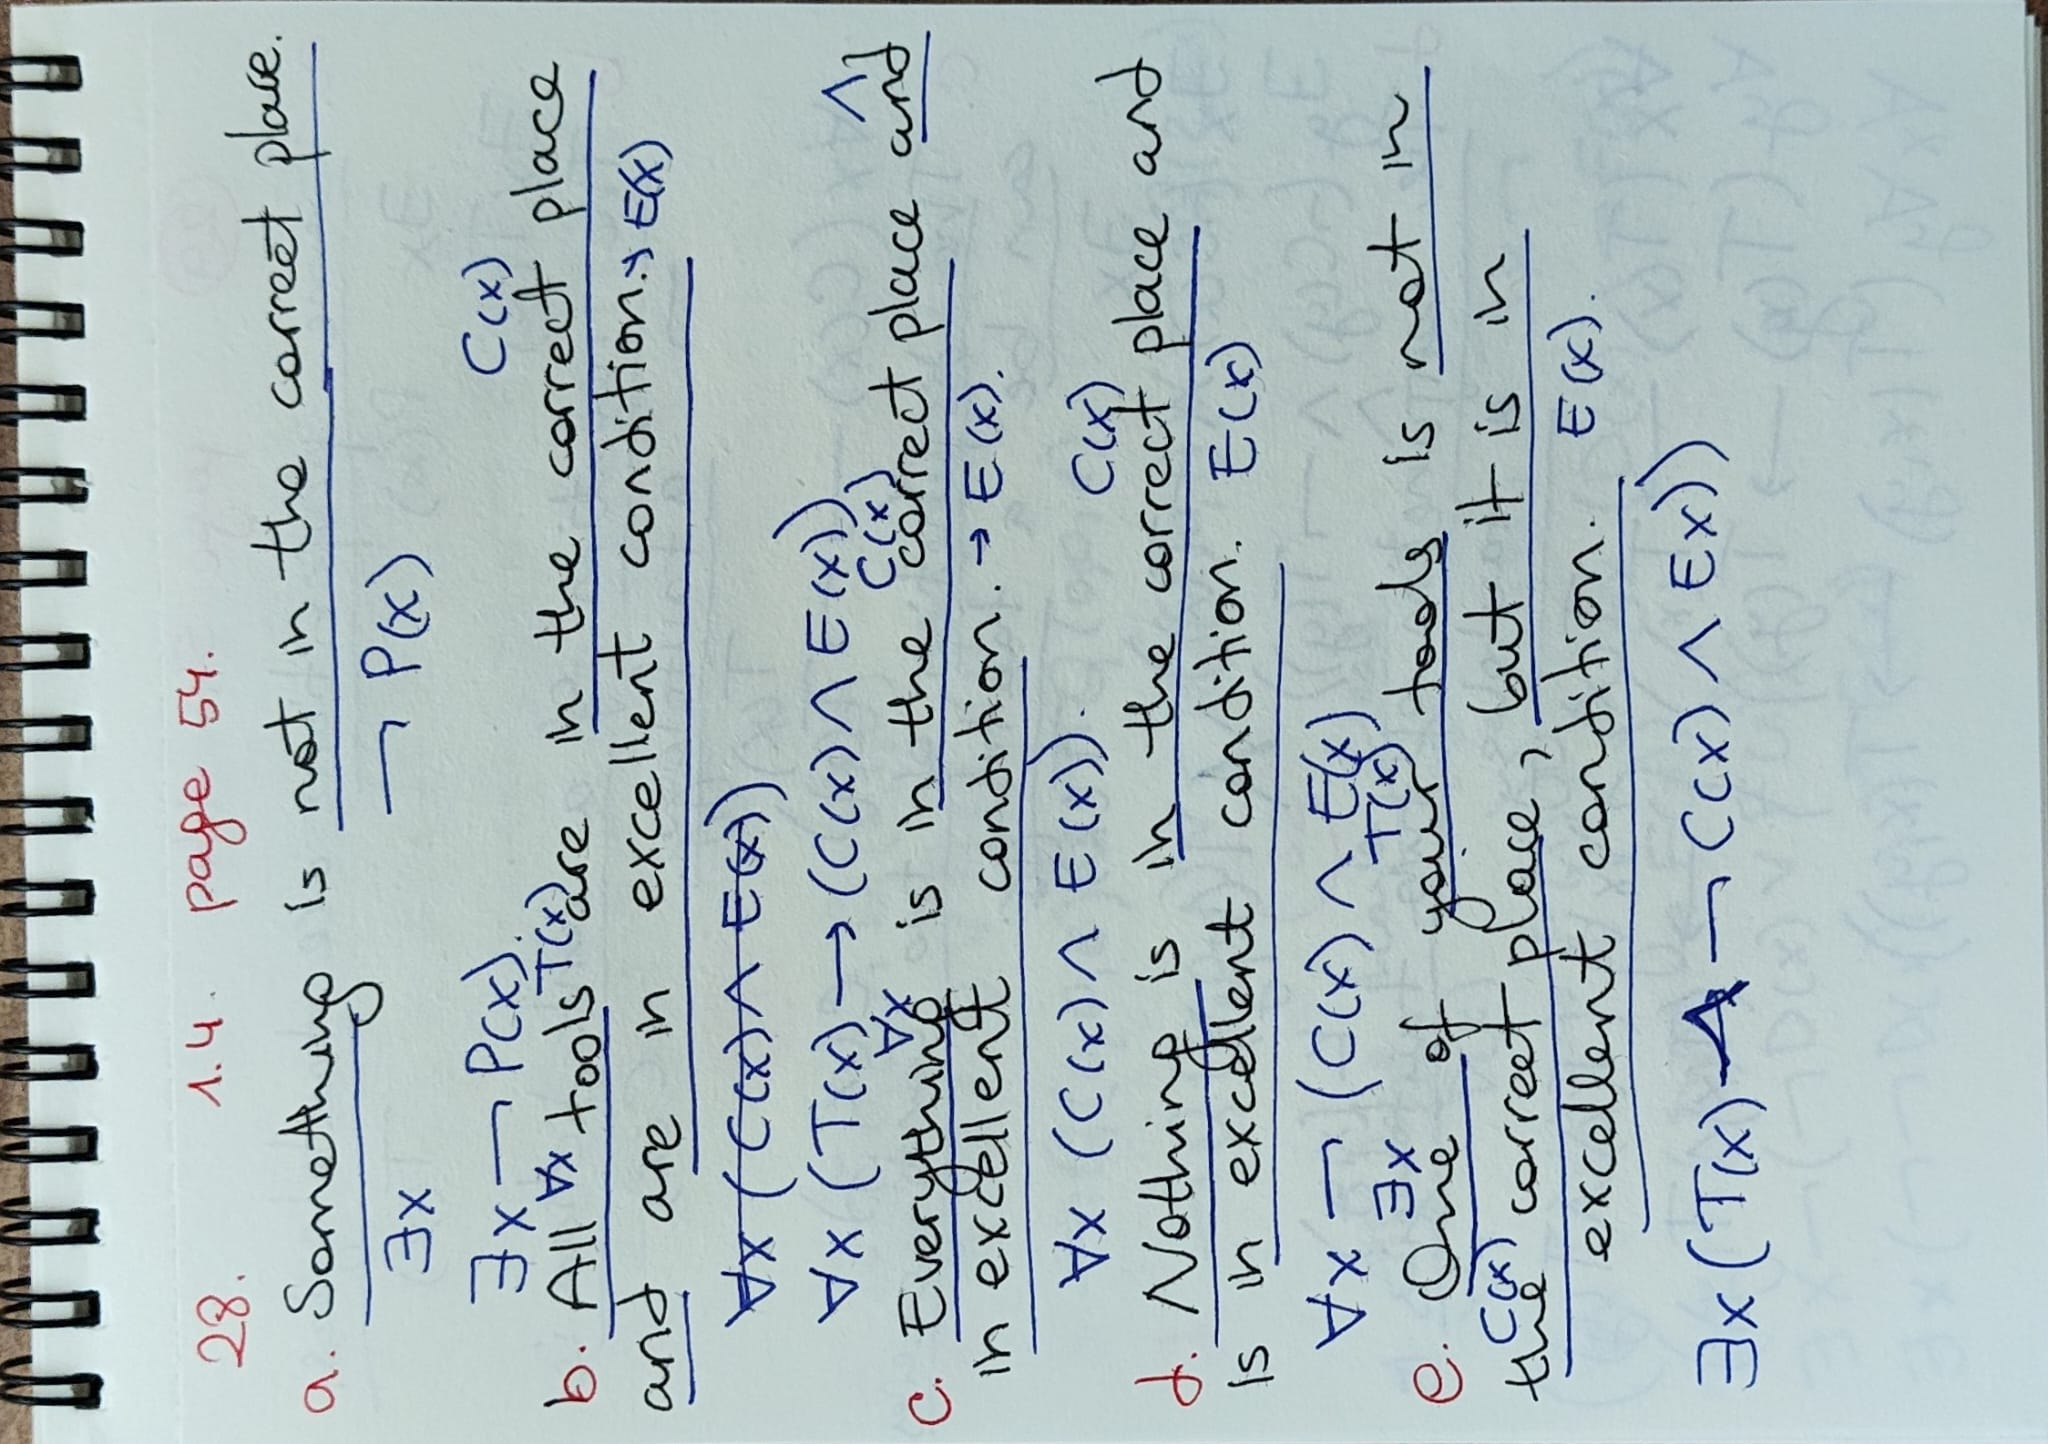 28. 1.4. page 54.
a. Something is not in the correct place.
∃x ¬P(x)
∃x ¬P(x).
C(x)
∀x T(x)
b. All tools are in the correct place
and are in excellent condition. → E(x)
∀x (C(x) ∧ E(x))
∀x (T(x) → (C(x) ∧ E(x))
∀x C(x) ∧
c. Everything is in the correct place and
in excellent condition. → E(x).
∀x (C(x) ∧ E(x)).
C(x)
d. Nothing is in the correct place and
is in excellent condition. E(x)
∀x ¬(C(x) ∧ E(x)
∃x T(x)
e. One of your tools is not in
C(x)
the correct place, but it is in
excellent condition. E(x).
∃x (T(x) ∧ ¬C(x) ∧ Ex))